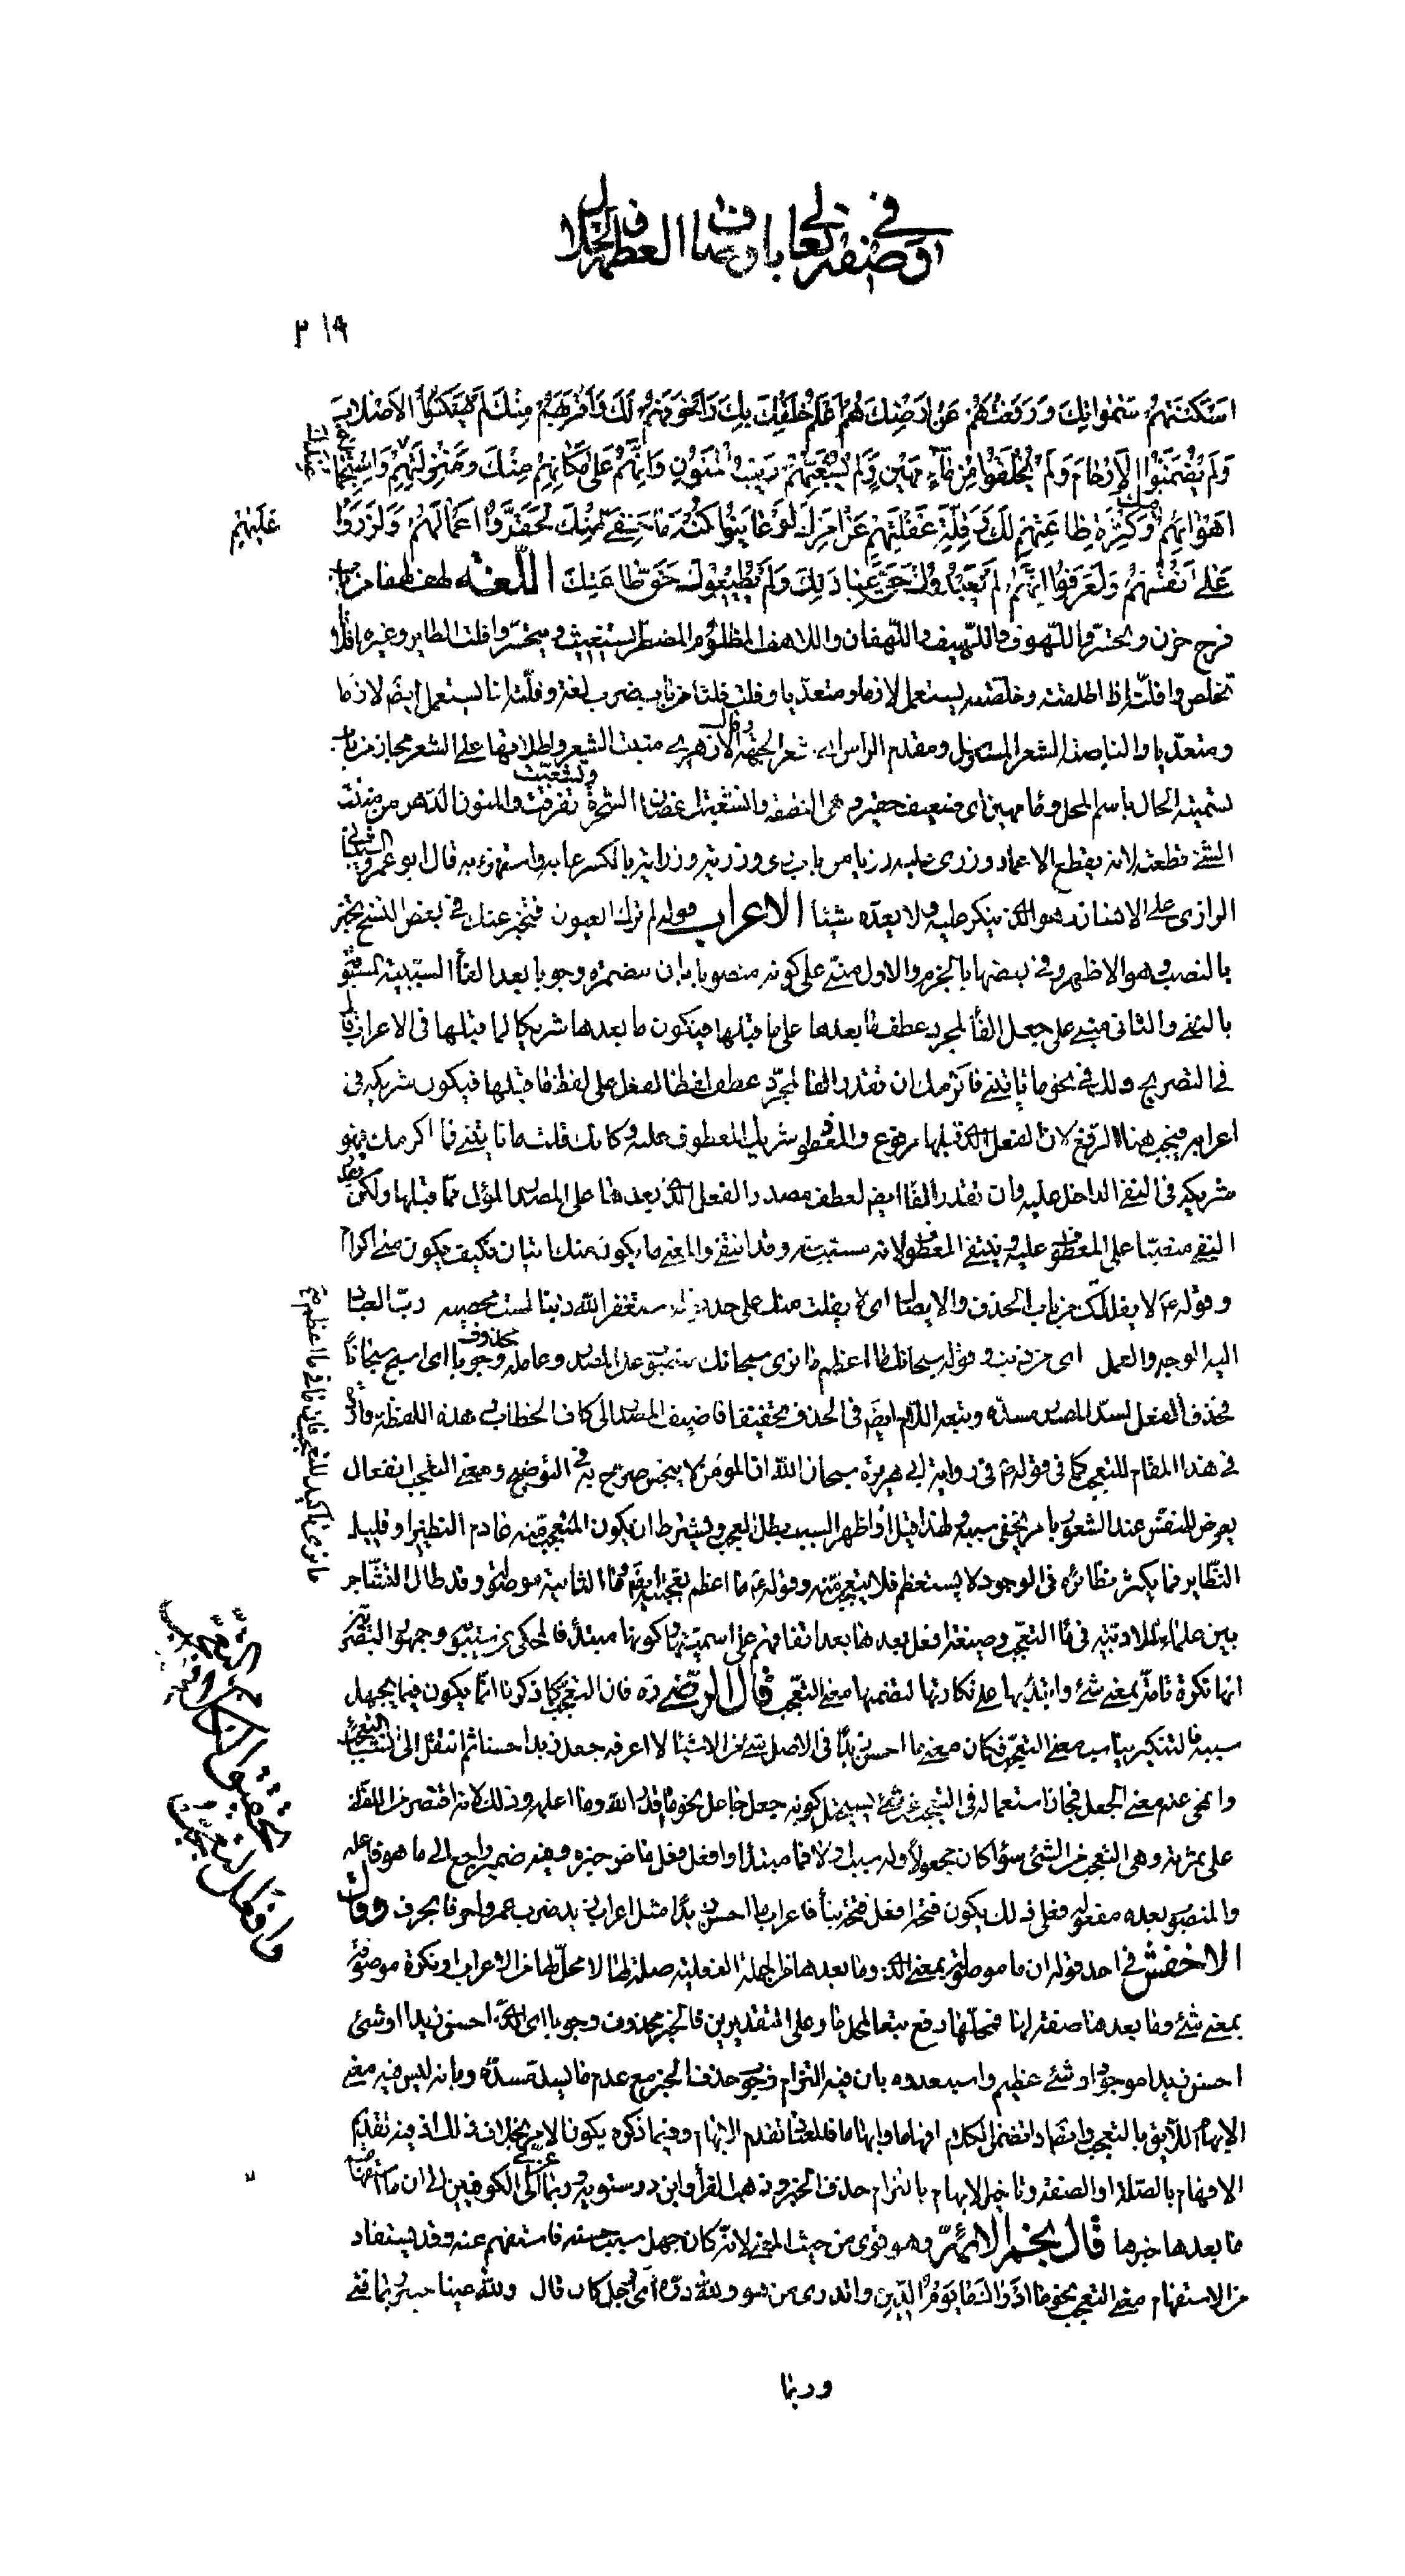 في وصفه تعالى باوصاف العظمة والجلال
٣١٩
اَسْكَنْتَهُمْ سَمٰوٰاتِكَ وَرَفَعْتَهُمْ عَنْ اَرْضِكَ هُمْ اَعْلَمُ خَلْقِكَ بِكَ وَاَخْوَفُهُمْ لَكَ وَاَقْرَبُهُمْ مِنْكَ لَمْ يَسْكُنُوا الْاَصْلابَ
وَلَمْ يُضَمَّنُوا الْاَرْحٰامَ وَلَمْ يُخْلَقُوا مِنْ مٰآءٍ مَهِينٍ وَلَمْ يَشْعَبْهُمْ رَيْبُ الْمَنُونِ وَاِنَّهُمْ عَلىٰ مَكٰانِهِمْ مِنْكَ وَمَنْزِلَتِهِمْ عِنْدَكَ وَاسْتِجْمٰاعِ
اَهْوٰائِهِمْ فِيكَ وَكَثْرَةِ طٰاعَتِهِمْ لَكَ وَقِلَّةِ غَفْلَتِهِمْ عَنْ اَمْرِكَ لَوْ عٰايَنُوا كُنْهَ مٰا خَفِيَ عَلَيْهِمْ مِنْكَ لَحَقَّرُوا اَعْمٰالَهُمْ وَلَزَرَوْا
عَلىٰ اَنْفُسِهِمْ وَلَعَرَفُوا اَنَّهُمْ لَمْ يَعْبُدُوكَ حَقَّ عِبٰادَتِكَ وَلَمْ يُطِيعُوكَ حَقَّ طٰاعَتِكَ اللغة لهف لهفا من باب
فرح حزن وتحسّر واللّهوف واللّهيف واللّهفان واللاهف المظلوم المضطر يستغيث ويتحسّر وافلت الطاير وغيره افلاتا
تخلص وافلتّه اذا اطلقته وخلصته يستعمل لازما ومتعديا وفلت فلتا من باب ضرب لغة وفلتّه انا يستعمل ايضا لازما
ومتعديا والناصية الشعر المسترسل في مقدم الراس اي شعر الجبهة وقال الازهري منبت الشعر واطلاقها على الشعر مجاز من باب
تسمية الحال باسم المحل وماء مهين اى ضعيف حقير وهى النطفة وانشعبت اغصان الشجرة وتشعبت تفرقت والمنون الدّهر من مننت
الشئ قطعته لانه يقطع الاعمار وزرى عليه زريا من باب رمى وزرية وزراية بالكسر عابه واستهزء به قال ابو عمرو الشيبانى
الزارى على الانسان هو الذى ينكر عليه ولا يعدّه شيئا الاعراب قوله لم ترك العيون فتخبر عنك فى بعض النسخ تخبر
بالنصب وهو الاظهر وفى بعضها بالجزم والاول مبنى على كونه منصوبا بان مضمرة وجوبا بعد الفاء السببية المسبوقة
بالنفى والثانى مبنى على جعل الفاء لمجرد عطف ما بعدها على ما قبلها فيكون ما بعدها شريكا لما قبلها فى الاعراب قال
فى التصريح ولك فى نحو ما تاتينى فاكرمك ان تقدر الفاء لمجرّد عطف لفظ الفعل على لفظ ما قبلها فيكون شريكه فى
اعرابه فيجب هنا الرفع لان الفعل الذى قبلها مرفوع والمعطوف شريك المعطوف عليه وكانك قلت ما تاتينى فما اكرمك فهو
شريكه فى النفى الداخل عليه وان تقدر الفاء ايضا لعطف مصدر الفعل الذى بعدها على المصدر المؤل مما قبلها ولكن يقدّر
النفى منصبّا على المعطوف عليه وينتفى المعطوف لانه مسبب عنه وقد انتفى والمعنى ما يكون منك اتيان فكيف يكون منى اكرام
وقوله ع لا يفلتك من باب الحذف والايصال اى لا يفلت منك على حدّ استغفر الله ذنبا لست محصيه ربّ العباد
اليه الوجه والعمل اى من ذنب وقوله سبحانك ما اعظم ما نرى سبحانك منصوب على المصدر وعامله محذوف وجوبا اى اسبح سبحانًا
فحذف الفعل لسدّ المصدر مسدّه وتبعه اللّام ايضا فى الحذف تخفيفا فاضيف المصدر الى كاف الخطاب وهذه اللفظة واردة
فى هذا المقام للتعجب كما فى قوله ص فى رواية ابى هريرة سبحان الله ان المؤمن لا ينجس صرّح به فى التوضيح ومعنى التعجب انفعال
يعرض للنفس عند الشعور بامر يخفى سببه ولهذا قيل اذا ظهر السبب بطل العجب ويشترط ان يكون المتعجب منه عادم النظير او قليل
النظاير فما يكثر نظائره فى الوجود لا يستعظم فلا يتعجب منه وقوله ع ما اعظم تعجب ايضا وما الثانية موصولة وقد طال التشاجر
بين علماء الادبية فى ما التعجب وصيغة افعل بعدها بعد اتفاقهم على اسميّتها وكونها مبتدأ فالمحكى عن سيبويه وجمهور البصريين
انها نكرة تامة بمعنى شئ وابتدء بها على نكارتها لتضمنها معنى التعجب قال الرضى ره فان التعجب كما ذكرنا انما يكون فيما يجهل
سببه فالتنكير يناسب معنى التعجب فكان معنى ما احسن زيدًا فى الاصل شئ من الاشياء لا اعرفه جعل زيدا حسنا ثم انتقل الى انشاء التعجب
وانمحى عنه معنى الجعل فجاز استعماله فى التعجب عن شئ يستحيل كونه بجعل جاعل نحو ما اقدر الله وما اعلمه وذلك لانه اقتصر من اللفظ
على ثمرته وهى التعجب من الشئ سواء كان مجعولا وله سبب اولا فما مبتدأ وافعل فعل ماض خبره وفيه ضمير راجع الى ما هو فاعله
والمنصوب بعده مفعوله فعلى ذلك يكون فتحة افعل فتحة بناء فاعراب ما احسن زيدًا مثل اعراب زيد ضرب عمروا حرفا بحرف وقال
الاخفش فى احد قوليه ان ما موصولة بمعنى الذى وما بعدها من الجملة الفعلية صلة لها لا محلّ لها من الاعراب او نكرة موصوفة
بمعنى شئ وما بعدها صفة لها فمحلّها رفع تبعا لمحل ما وعلى التقديرين فالخبر محذوف وجوبا اى الذى احسن زيدا او شئ
احسن زيدا موجود او شئ عظيم واستبعدوه بان فيه التزام وجوب حذف الخبر مع عدم ما يسدّ مسدّه وبانه ليس فيه معنى
الابهام اللايق بالتعجب وايضا اذا تضمن الكلام افهاما وابهاما فالمعتاد تقدم الابهام وفيما ذكره يكون الامر بخلاف ذلك اذ فيه تقديم
الافهام بالصلة او الصفة وتاخير الابهام بالتزام حذف الخبر وذهب الفراء وابن درستويه وربما عزى الى الكوفيين الى ان ما استفهامية
ما بعدها خبرها قال نجم الائمّة وهو قوى من حيث المعنى لانه كان جهل سبب حسنه فاستفهم عنه وقد يستفاد
من الاستفهام معنى التعجب نحو ما ادريك ما يوم الدّين واتدرى من هو ولله درّه اىّ رجل كان قال ولله عينا حبتر ايّما فتى
ما نرى تاكيد للتعجب فان ما فى ما اعظم ع
تحقيق الكلام فى ما التعجب
وافعال التعجب
وربما